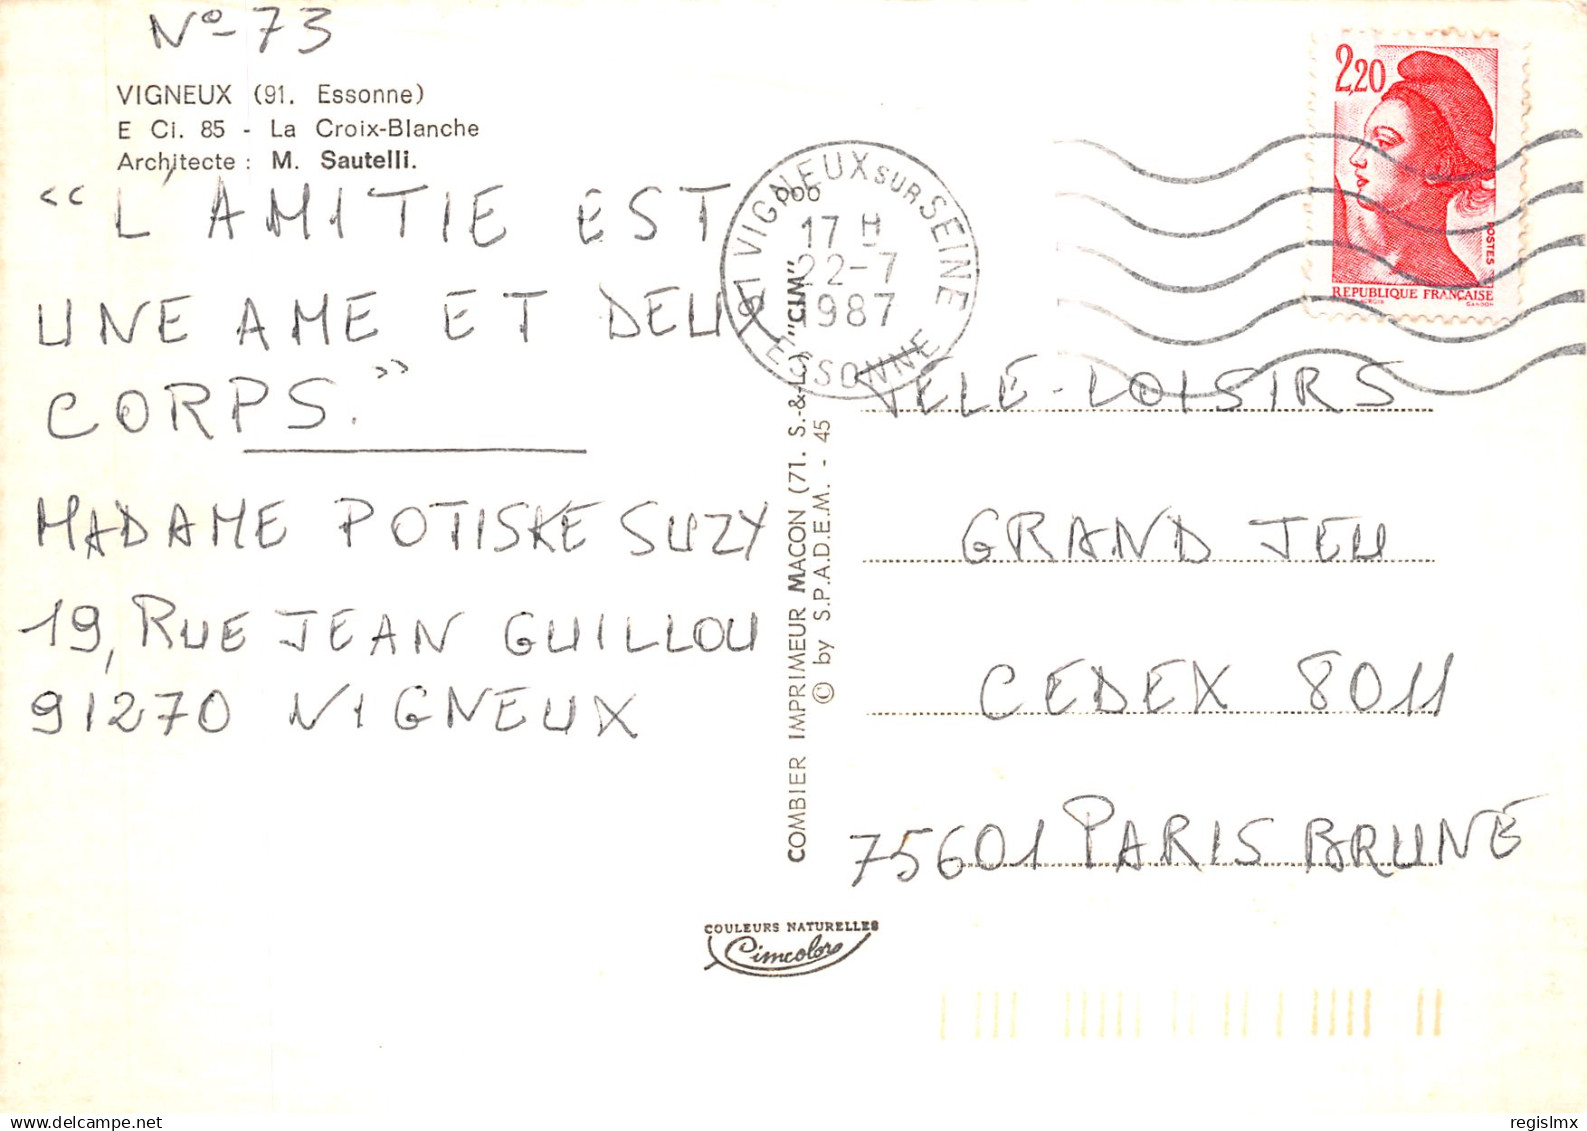 N° - 73
VIGNEUX (91. Essonne)
E Ci. 85 - La Croix-Blanche
Architecte : M. Sautelli.
“ L'AMITIE EST
UNE AME ET DEUX
CORPS. ”
MADAME POTISKE SUZY
19, RUE JEAN GUILLOU
91270 VIGNEUX
VIGNEUX SUR SEINE
17 H
22-7
1987
ESSONNE
COMBIER IMPRIMEUR MACON (71. S.-&-L.) "CIM"
© by S.P.A.D.E.M. - 45
2,20
POSTES
REPUBLIQUE FRANÇAISE
GANDON
TELE-LOISIRS
GRAND JEU
CEDEX 8011
75601 PARIS BRUNE
COULEURS NATURELLES
Cimcolor
regislmx